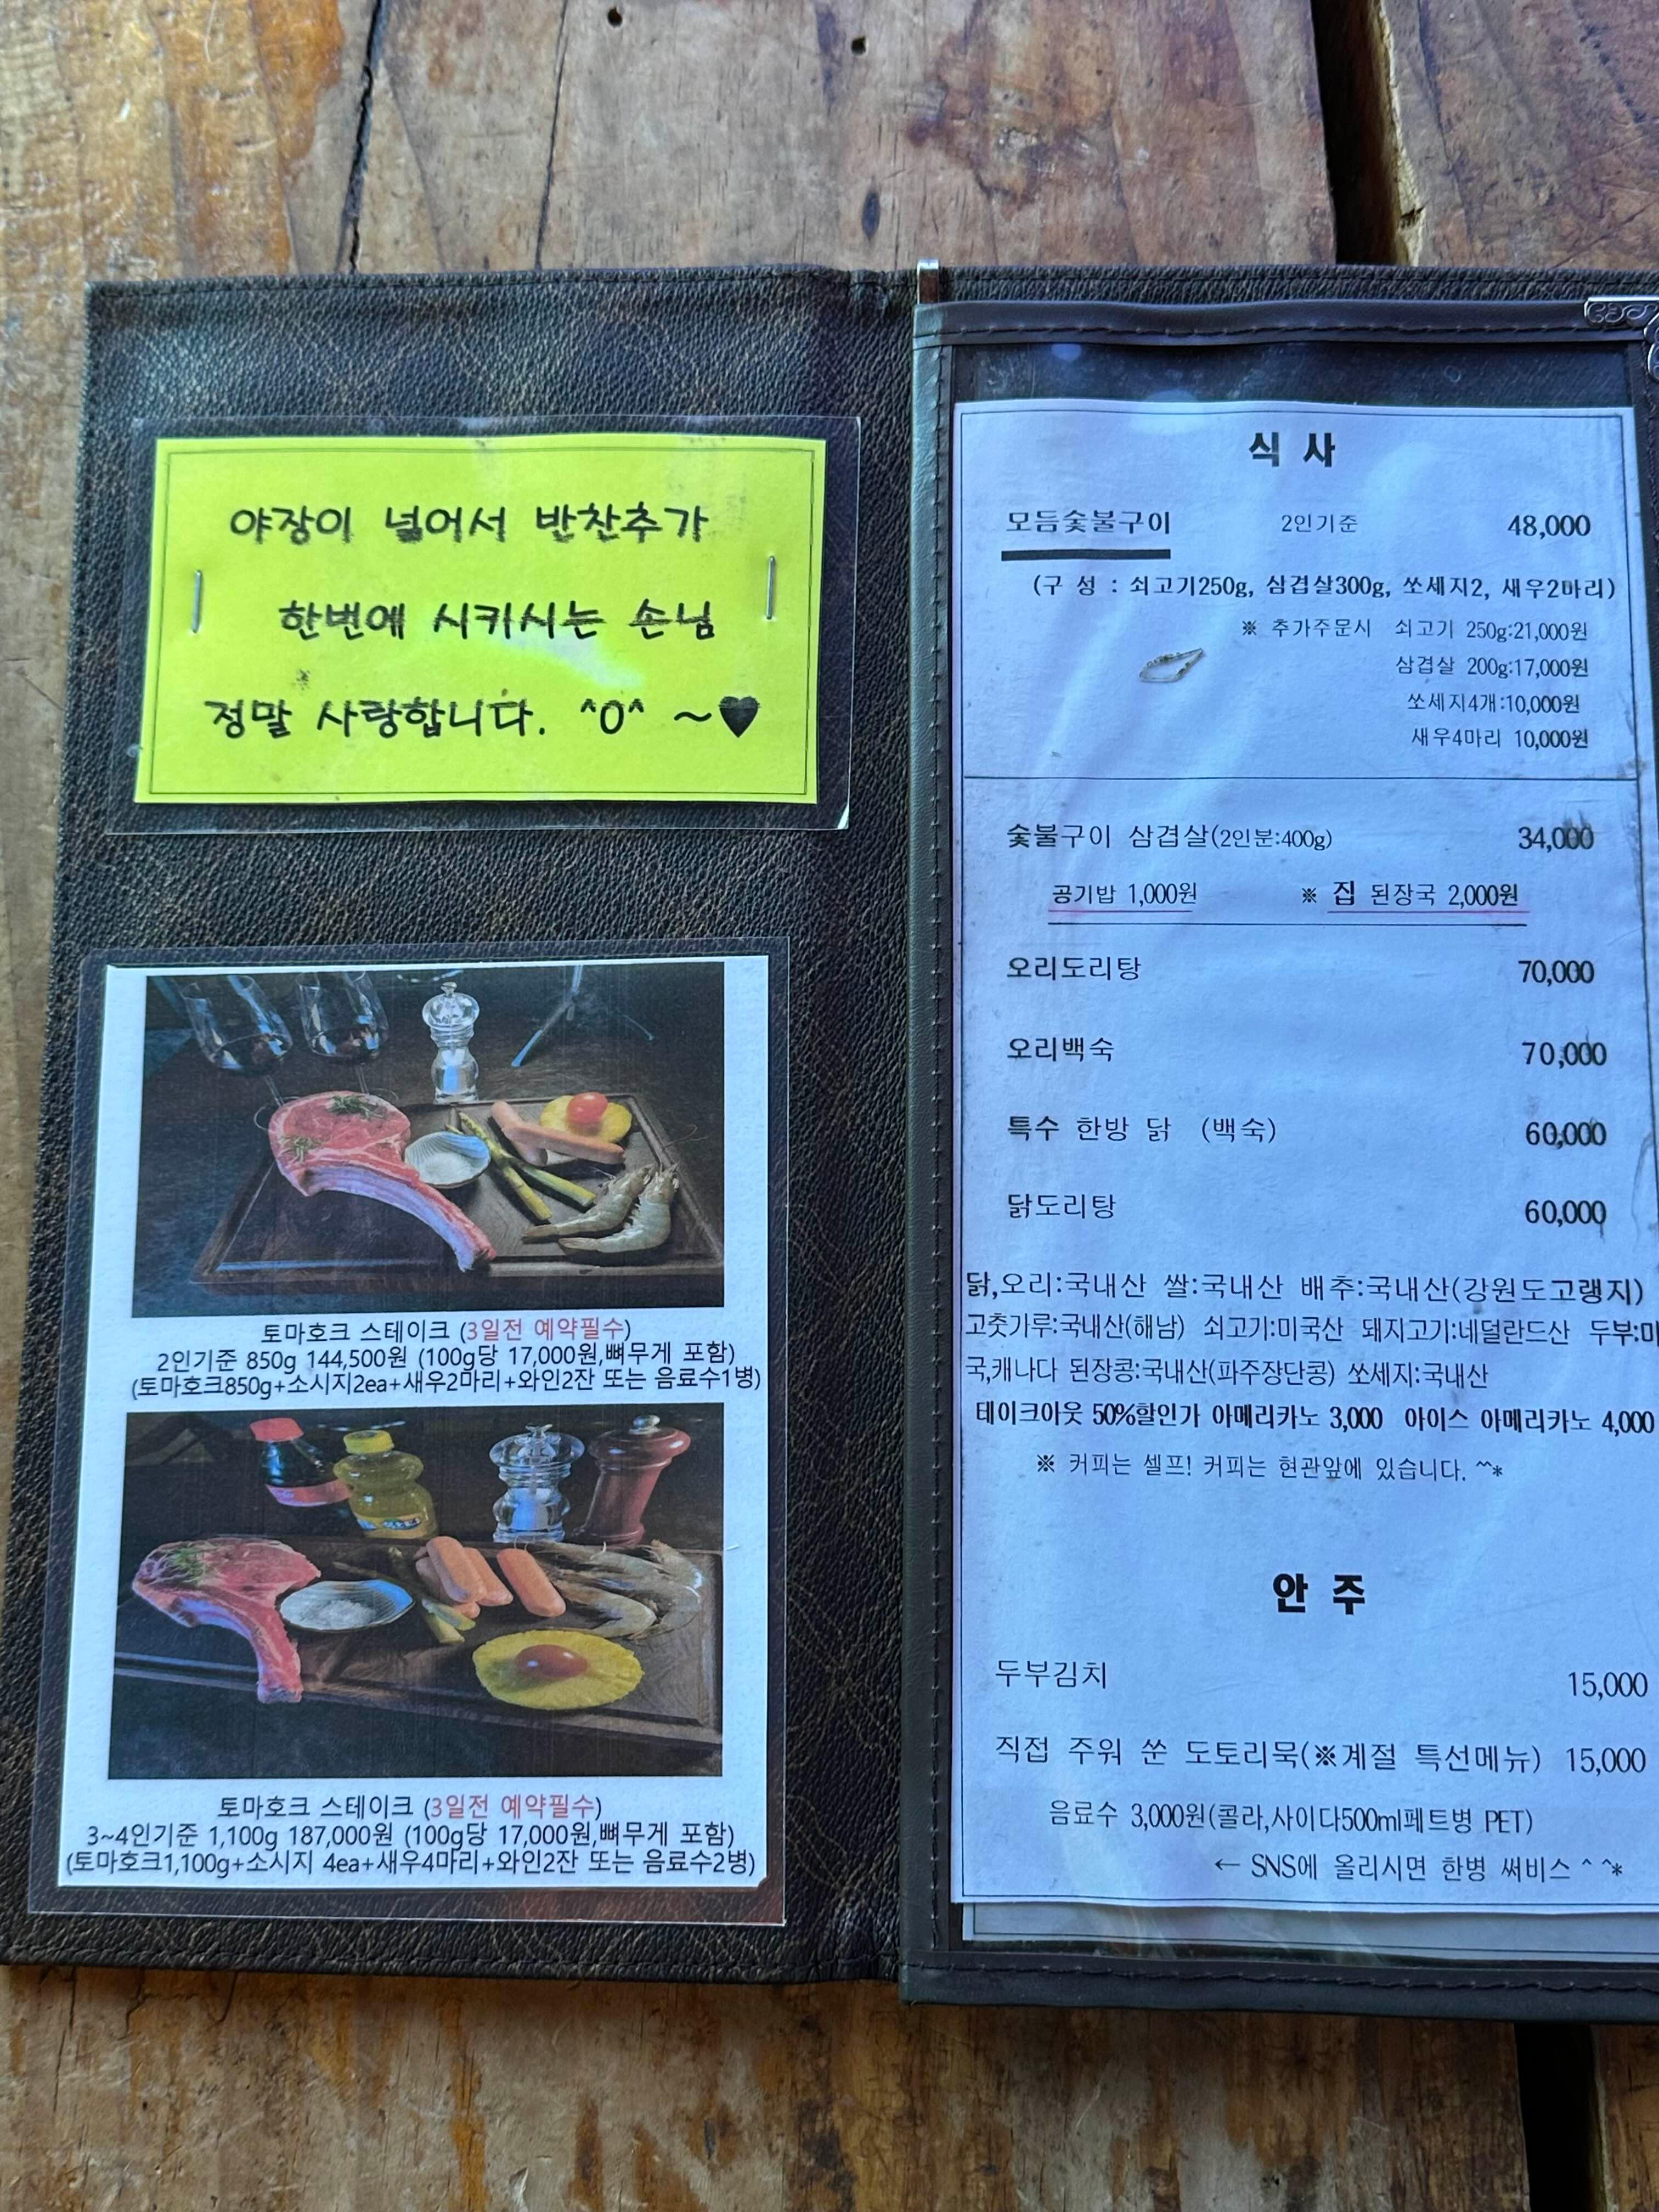 야장이 넓어서 반찬추가
한번에 시키시는 손님
정말 사랑합니다. ^O^ ~♥
토마호크 스테이크 (3일전 예약필수)
2인기준 850g 144,500원 (100g당 17,000원,뼈무게 포함)
(토마호크850g+소시지2ea+새우2마리+와인2잔 또는 음료수1병)
토마호크 스테이크 (3일전 예약필수)
3~4인기준 1,100g 187,000원 (100g당 17,000원,뼈무게 포함)
(토마호크1,100g+소시지 4ea+새우4마리+와인2잔 또는 음료수2병)
식 사
모듬숯불구이 2인기준 48,000
(구 성 : 쇠고기250g, 삼겹살300g, 쏘세지2, 새우2마리)
※ 추가주문시 쇠고기 250g:21,000원
삼겹살 200g:17,000원
쏘세지4개:10,000원
새우4마리 10,000원
숯불구이 삼겹살(2인분:400g) 34,000
공기밥 1,000원 ※ 집 된장국 2,000원
오리도리탕 70,000
오리백숙 70,000
특수 한방 닭 (백숙) 60,000
닭도리탕 60,000
닭,오리:국내산 쌀:국내산 배추:국내산(강원도고랭지)
고춧가루:국내산(해남) 쇠고기:미국산 돼지고기:네덜란드산 두부:미
국,캐나다 된장콩:국내산(파주장단콩) 쏘세지:국내산
테이크아웃 50%할인가 아메리카노 3,000 아이스 아메리카노 4,000
※ 커피는 셀프! 커피는 현관앞에 있습니다. ^^*
안 주
두부김치 15,000
직접 주워 쑨 도토리묵(※계절 특선메뉴) 15,000
음료수 3,000원(콜라,사이다500ml페트병 PET)
← SNS에 올리시면 한병 써비스 ^ ^*